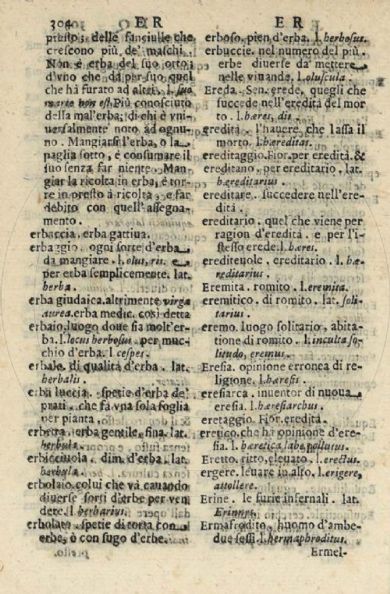 304 E R
presto; delle fanciulle che
crescono più de' maschi.
Non è erba del suo orto;
d'vno che dà per suo quel
che hà furato ad altri, l. suo
marte non est. Più conosciuto
della mal'erba; di chi è vni-
uersalmente noto ad ognu-
no. Mangiarsi l'erba, o la
paglia sotto, è consumare il
suo senza far niente. Man-
giar la ricolta in erba, è tor-
re in presto à ricolta, e far
debito con quell'assegna-
mento.
erbaccia, erba gattiua.
erbaggio, ogni sorte d'erba
da mangiare. l. olus, ris. e
per erba semplicemente. lat.
herba.
erba giudaica. altrimente virga
aurea. erba medic. così detta
erbaio, luogo doue sia molt'er-
ba. l. locus herbosus. per muc-
chio d'erba. l. cespes.
erbale. di qualità d'erba. lat.
herbalis.
erba luccia. spetie d'erba de'
prati. che fà vna sola foglia
per pianta.
erbetta. erba gentile, fina. lat.
herbula.
erbicciuola. dim. d'erba. lat.
herbula
erbolaio. colui che và cauando
diuerse sorti d'erbe per ven
dere. l. herbarius.
erbolato. spetie di torta con
erbe, ò con sugo d'erbe.
E R
erboso, pien d'erba. l. herbosus.
erbuccie. nel numero del più,
erbe diuerse da mettere
nelle viuande. l. oluscula.
Ereda. Sen. erede, quegli che
succede nell'eredità del mor
to. l. hæres, dis.
eredità. l'hauere, che lassa il
morto. l. hæreditas.
ereditaggio. Fior. per eredità. &
ereditano. per ereditario. lat.
hæreditarius.
ereditare. succedere nell'ere-
dità.
ereditario. quel che viene per
ragion d'eredità. e per l'i-
stesso erede. l. hæres.
erediteuole, ereditario. l. hæ-
reditarius.
Eremita. romito. l. eremita.
eremitico. di romito. lat. soli-
tarius.
eremo. luogo solitario, abita-
tione di romito. l. inculta so-
litudo, eremus.
Eresia. opinione erronea di re-
ligione. l. hæresis.
eresiarca. inuentor di nuoua
eresia. l. hæresiarchus.
eretaggio. Fior. eredità.
eretico. che hà opinione d'ere-
sia. l. hæretica labe pollutus.
Eretto. ritto, eleuato. l. erectus.
ergere. leuare in alto. l. erigere,
attollere.
Erine. le furie infernali. lat.
Erinnys.
Ermafrodito. huomo d'ambe-
due sessi. l. hermaphroditus.
Ermel-